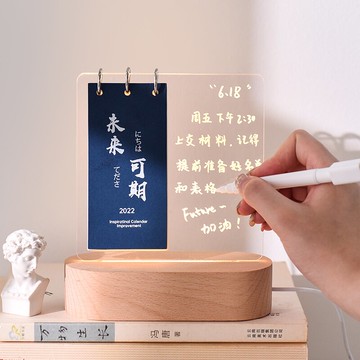 未来
可期
にちは
てださ
2022
Inspirational Calendar
Improvement
"6.18"
周五下午2:30
上交材料,记得
提前准备起立
面表格
Future~
加油!
万物生长
冯唐 著